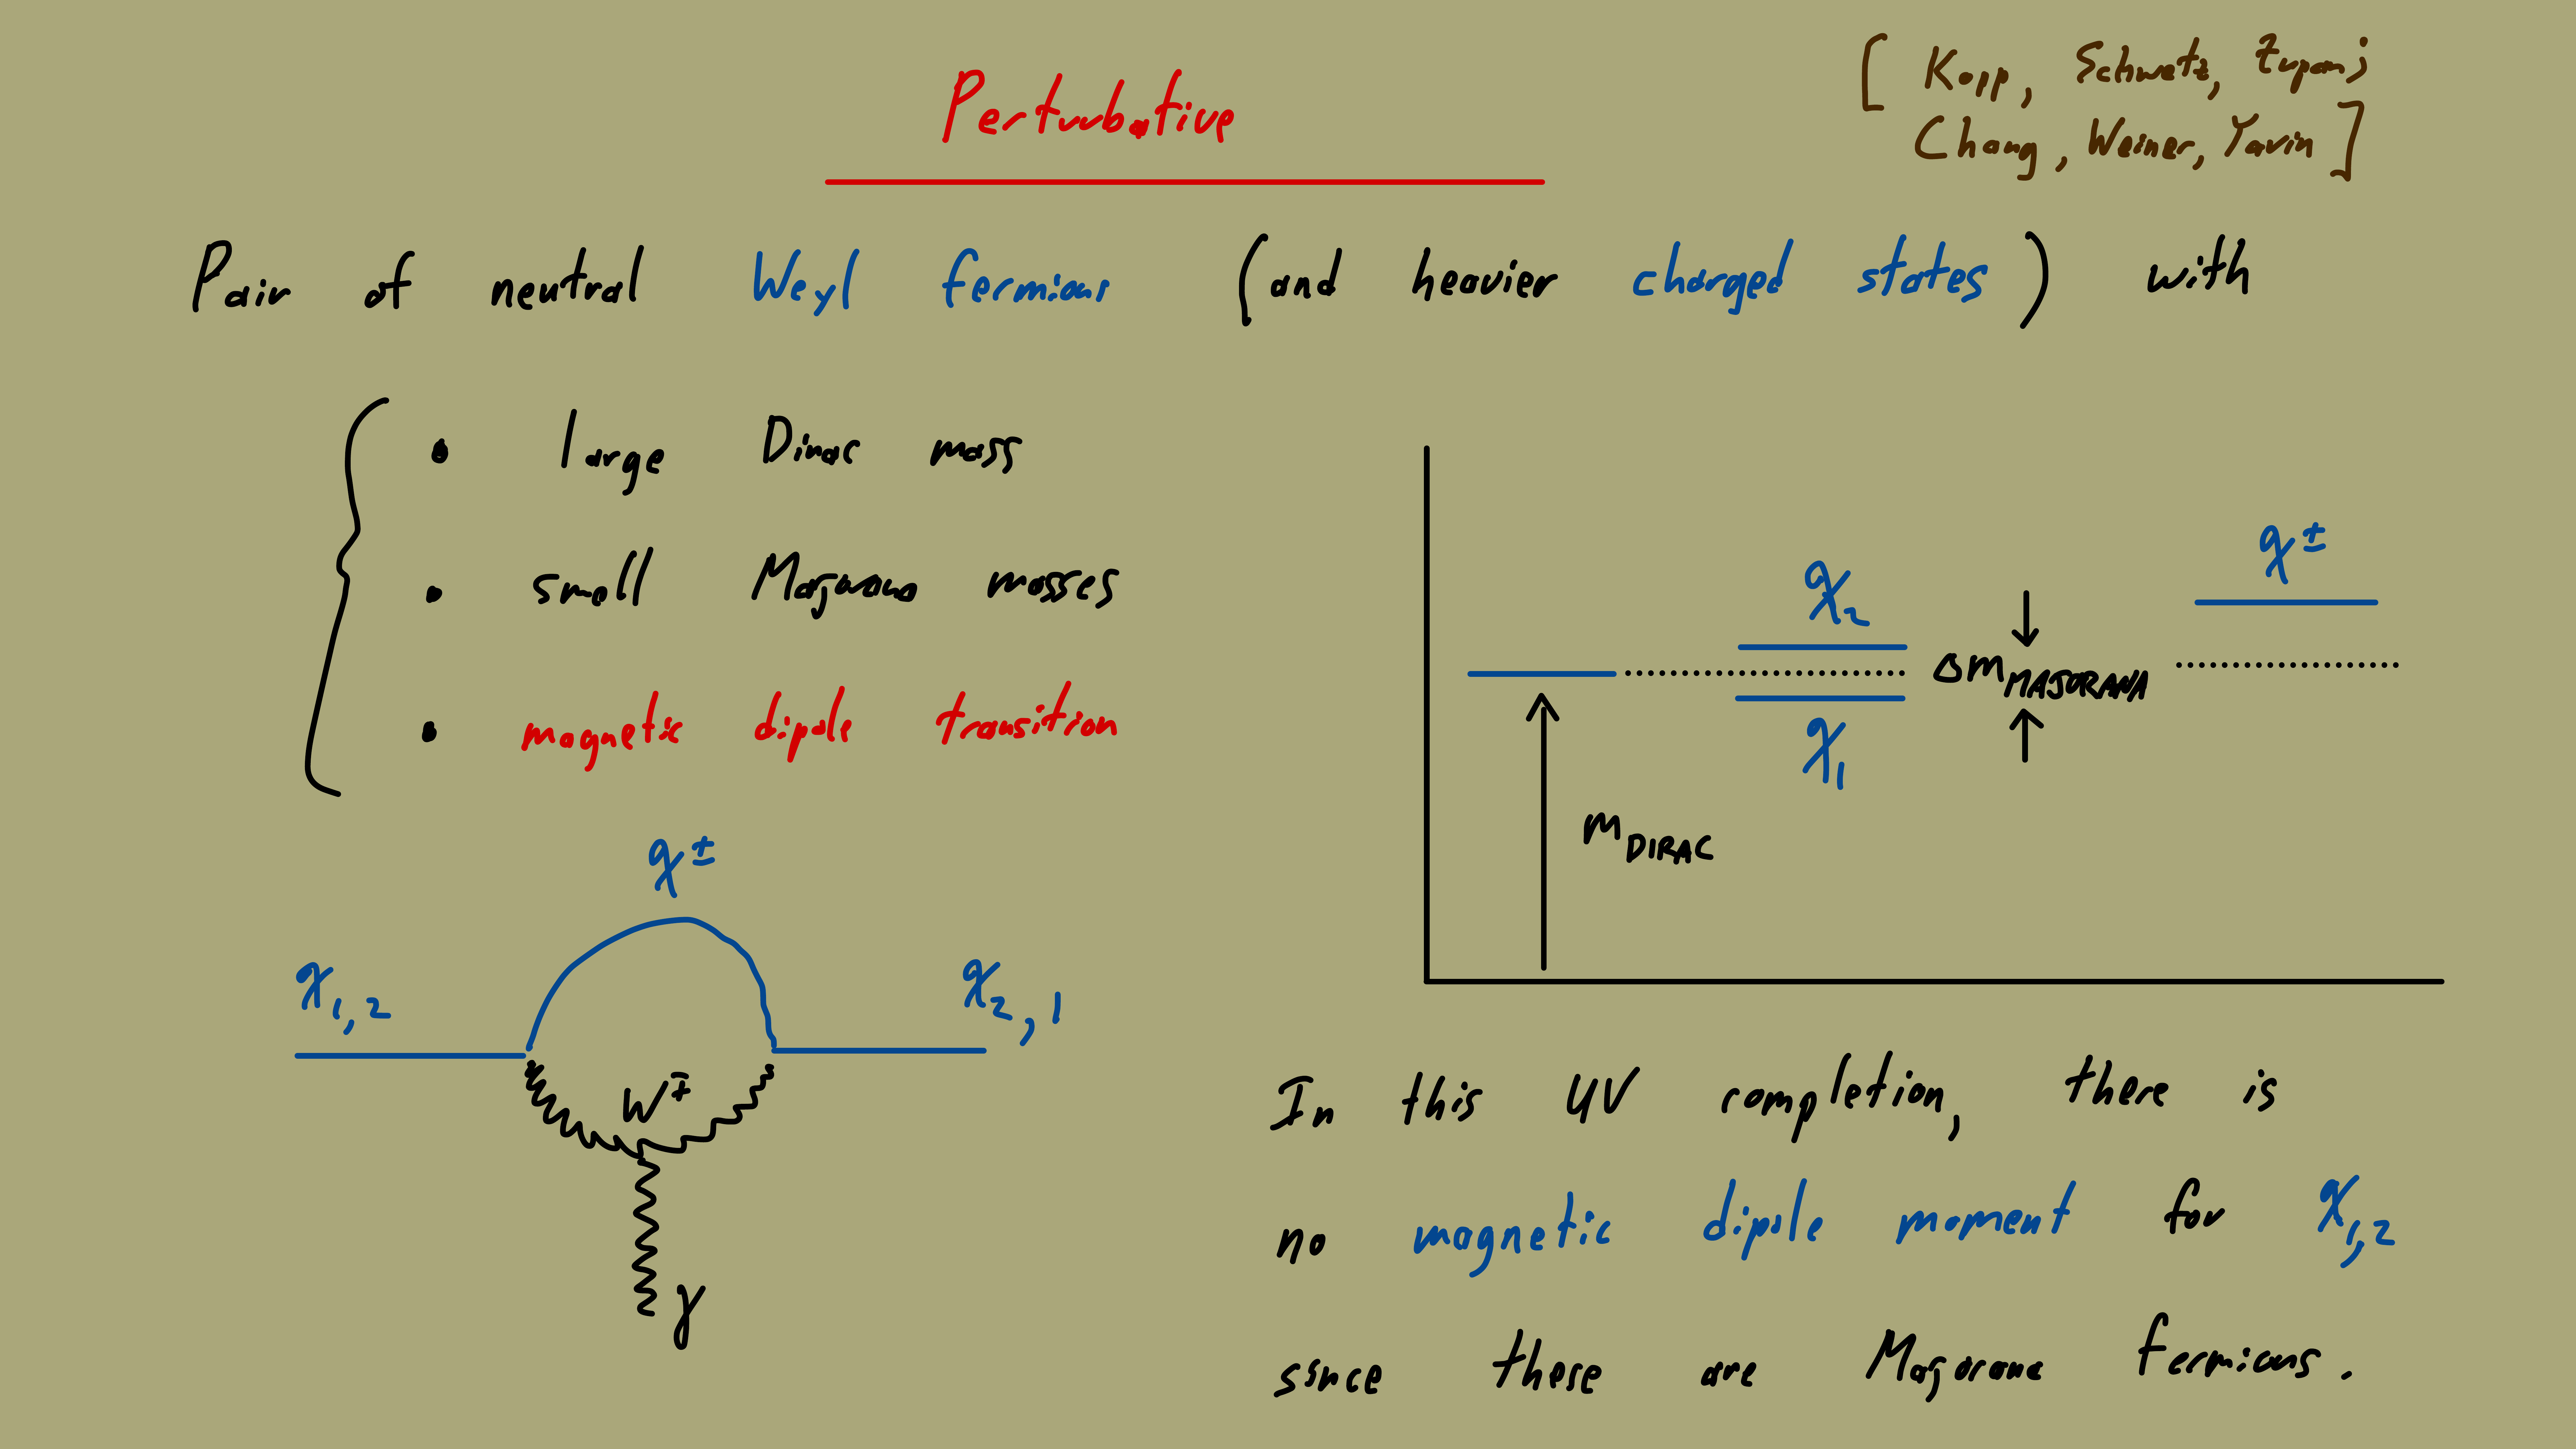 Perturbative
[ Kopp, Schwetz, Zupan;
Chang, Weiner, Yavin ]
Pair of neutral Weyl fermions (and heavier charged states) with
• large Dirac mass
• small Majorana masses
• magnetic dipole transition
χ±
χ1,2
χ2,1
W∓
γ
χ2
χ1
ΔmMAJORANA
χ±
mDIRAC
In this UV completion, there is
no magnetic dipole moment for χ1,2
since these are Majorana fermions.